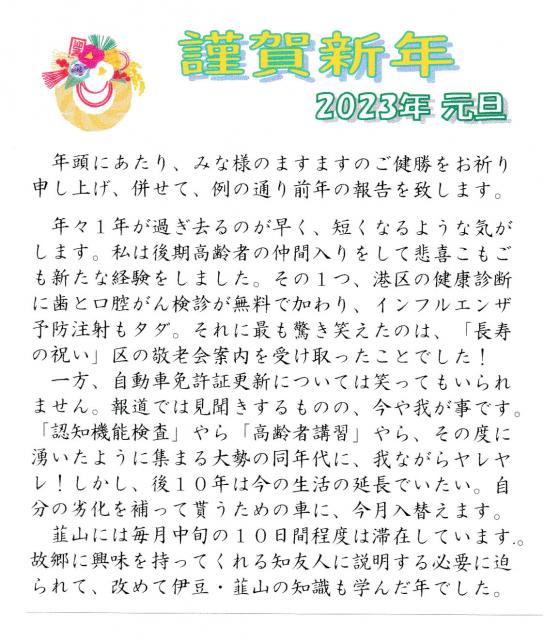 謹賀新年
2023年 元旦
年頭にあたり、みな様のますますのご健勝をお祈り
申し上げ、併せて、例の通り前年の報告を致します。
年々１年が過ぎ去るのが早く、短くなるような気が
します。私は後期高齢者の仲間入りをして悲喜こもご
も新たな経験をしました。その１つ、港区の健康診断
に歯と口腔がん検診が無料で加わり、インフルエンザ
予防注射もタダ。それに最も驚き笑えたのは、「長寿
の祝い」区の敬老会案内を受け取ったことでした！
一方、自動車免許証更新については笑ってもいられ
ません。報道では見聞きするものの、今や我が事です。
「認知機能検査」やら「高齢者講習」やら、その度に
湧いたように集まる大勢の同年代に、我ながらヤレヤ
レ！しかし、後１０年は今の生活の延長でいたい。自
分の劣化を補って貰うための車に、今月入替えます。
韮山には毎月中旬の１０日間程度は滞在しています。
故郷に興味を持ってくれる知友人に説明する必要に迫
られて、改めて伊豆・韮山の知識も学んだ年でした。